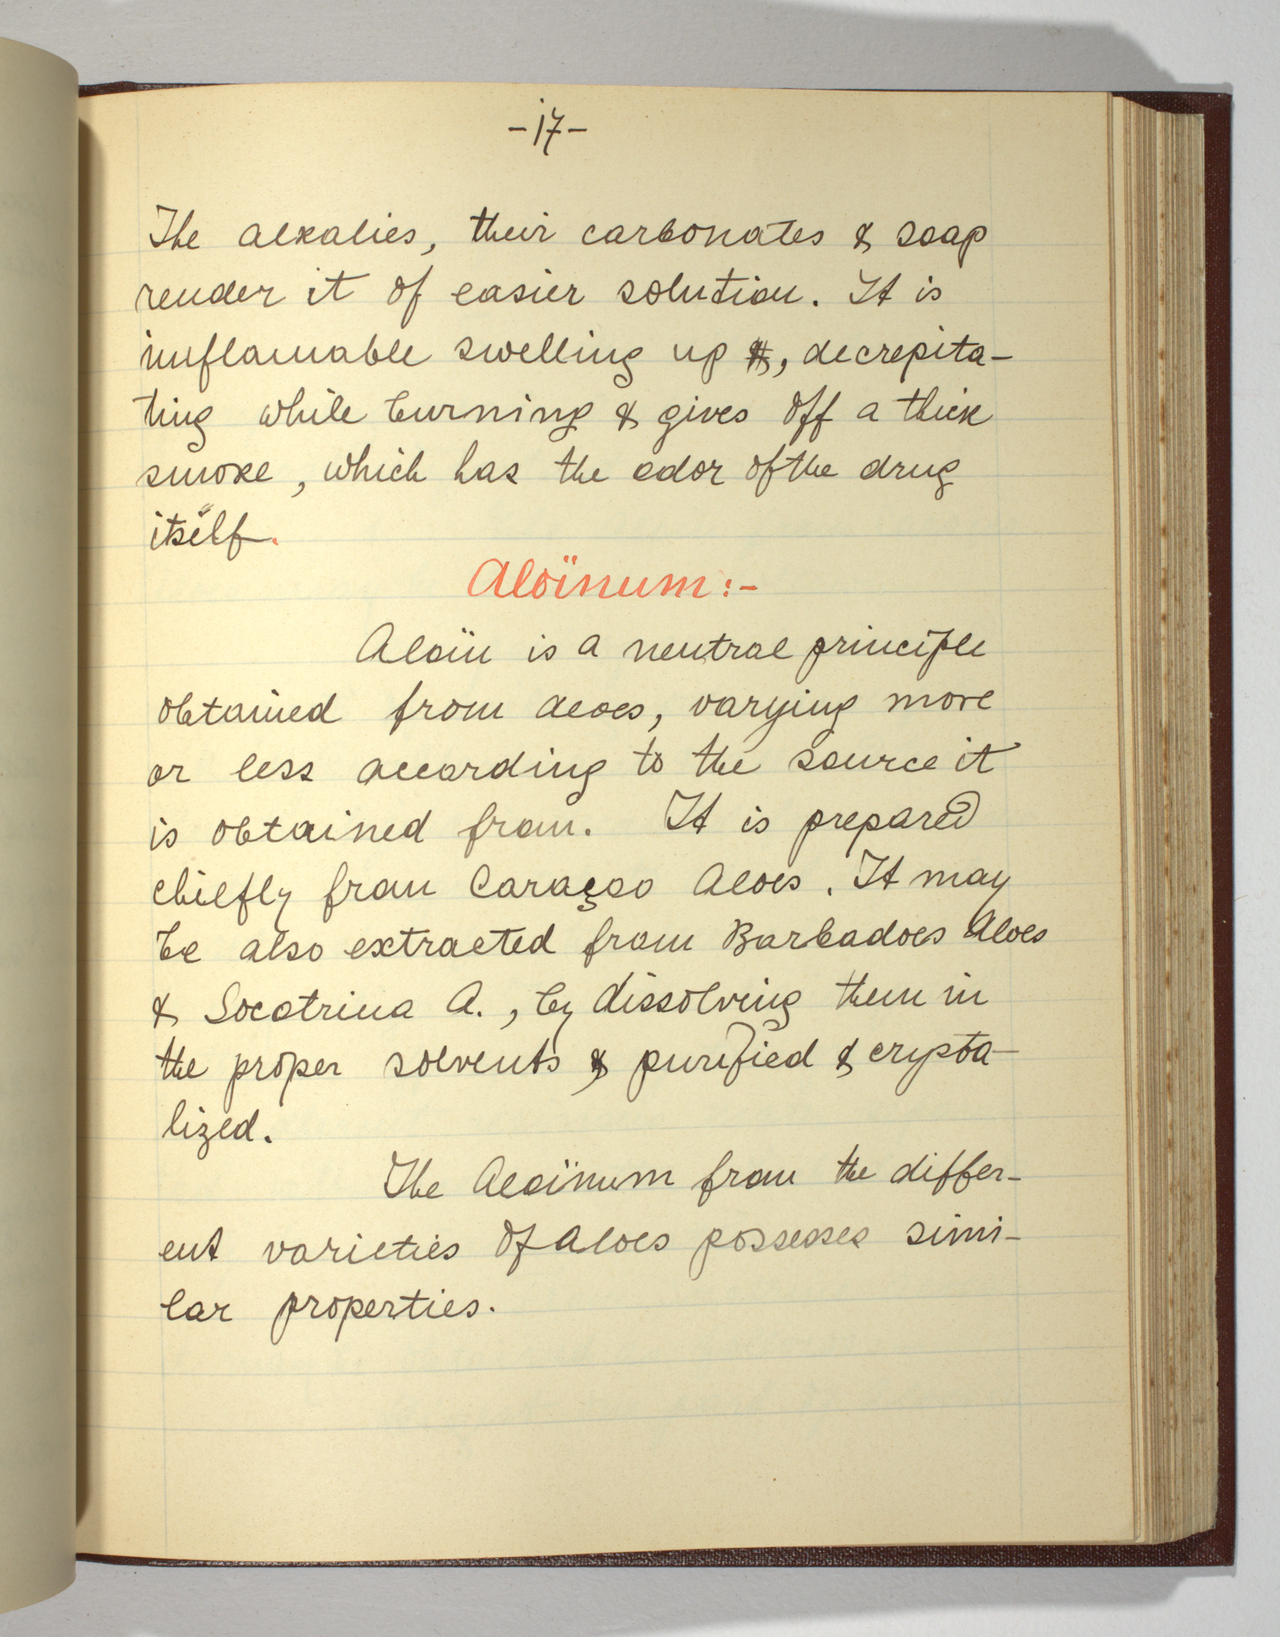 -17-
The alkalies, their carbonates & soap
render it of easier solution. It is
imflamable swelling up &, decrepita-
ting while burning & gives off a thick
smoke, which has the odor of the drug
itself.
Aloïnum:-
Aloïn is a neutral principle
obtained from aloes, varying more
or less according to the source it
is obtained from. It is prepared
chiefly from Curaçao Aloes. It may
be also extracted from Barbadoes Aloes
& Socotrina A., by dissolving them in
the proper solvents & purified & crysta-
lized.
The Aloïnum from the differ-
ent varieties of Aloes possesses simi-
lar properties.